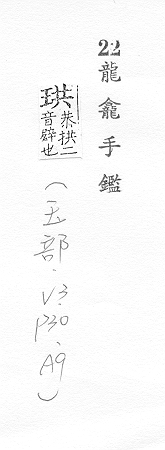 22龍龕手鑑
珙恭拱二
音璧也
(玉部.V3.P30.A9)